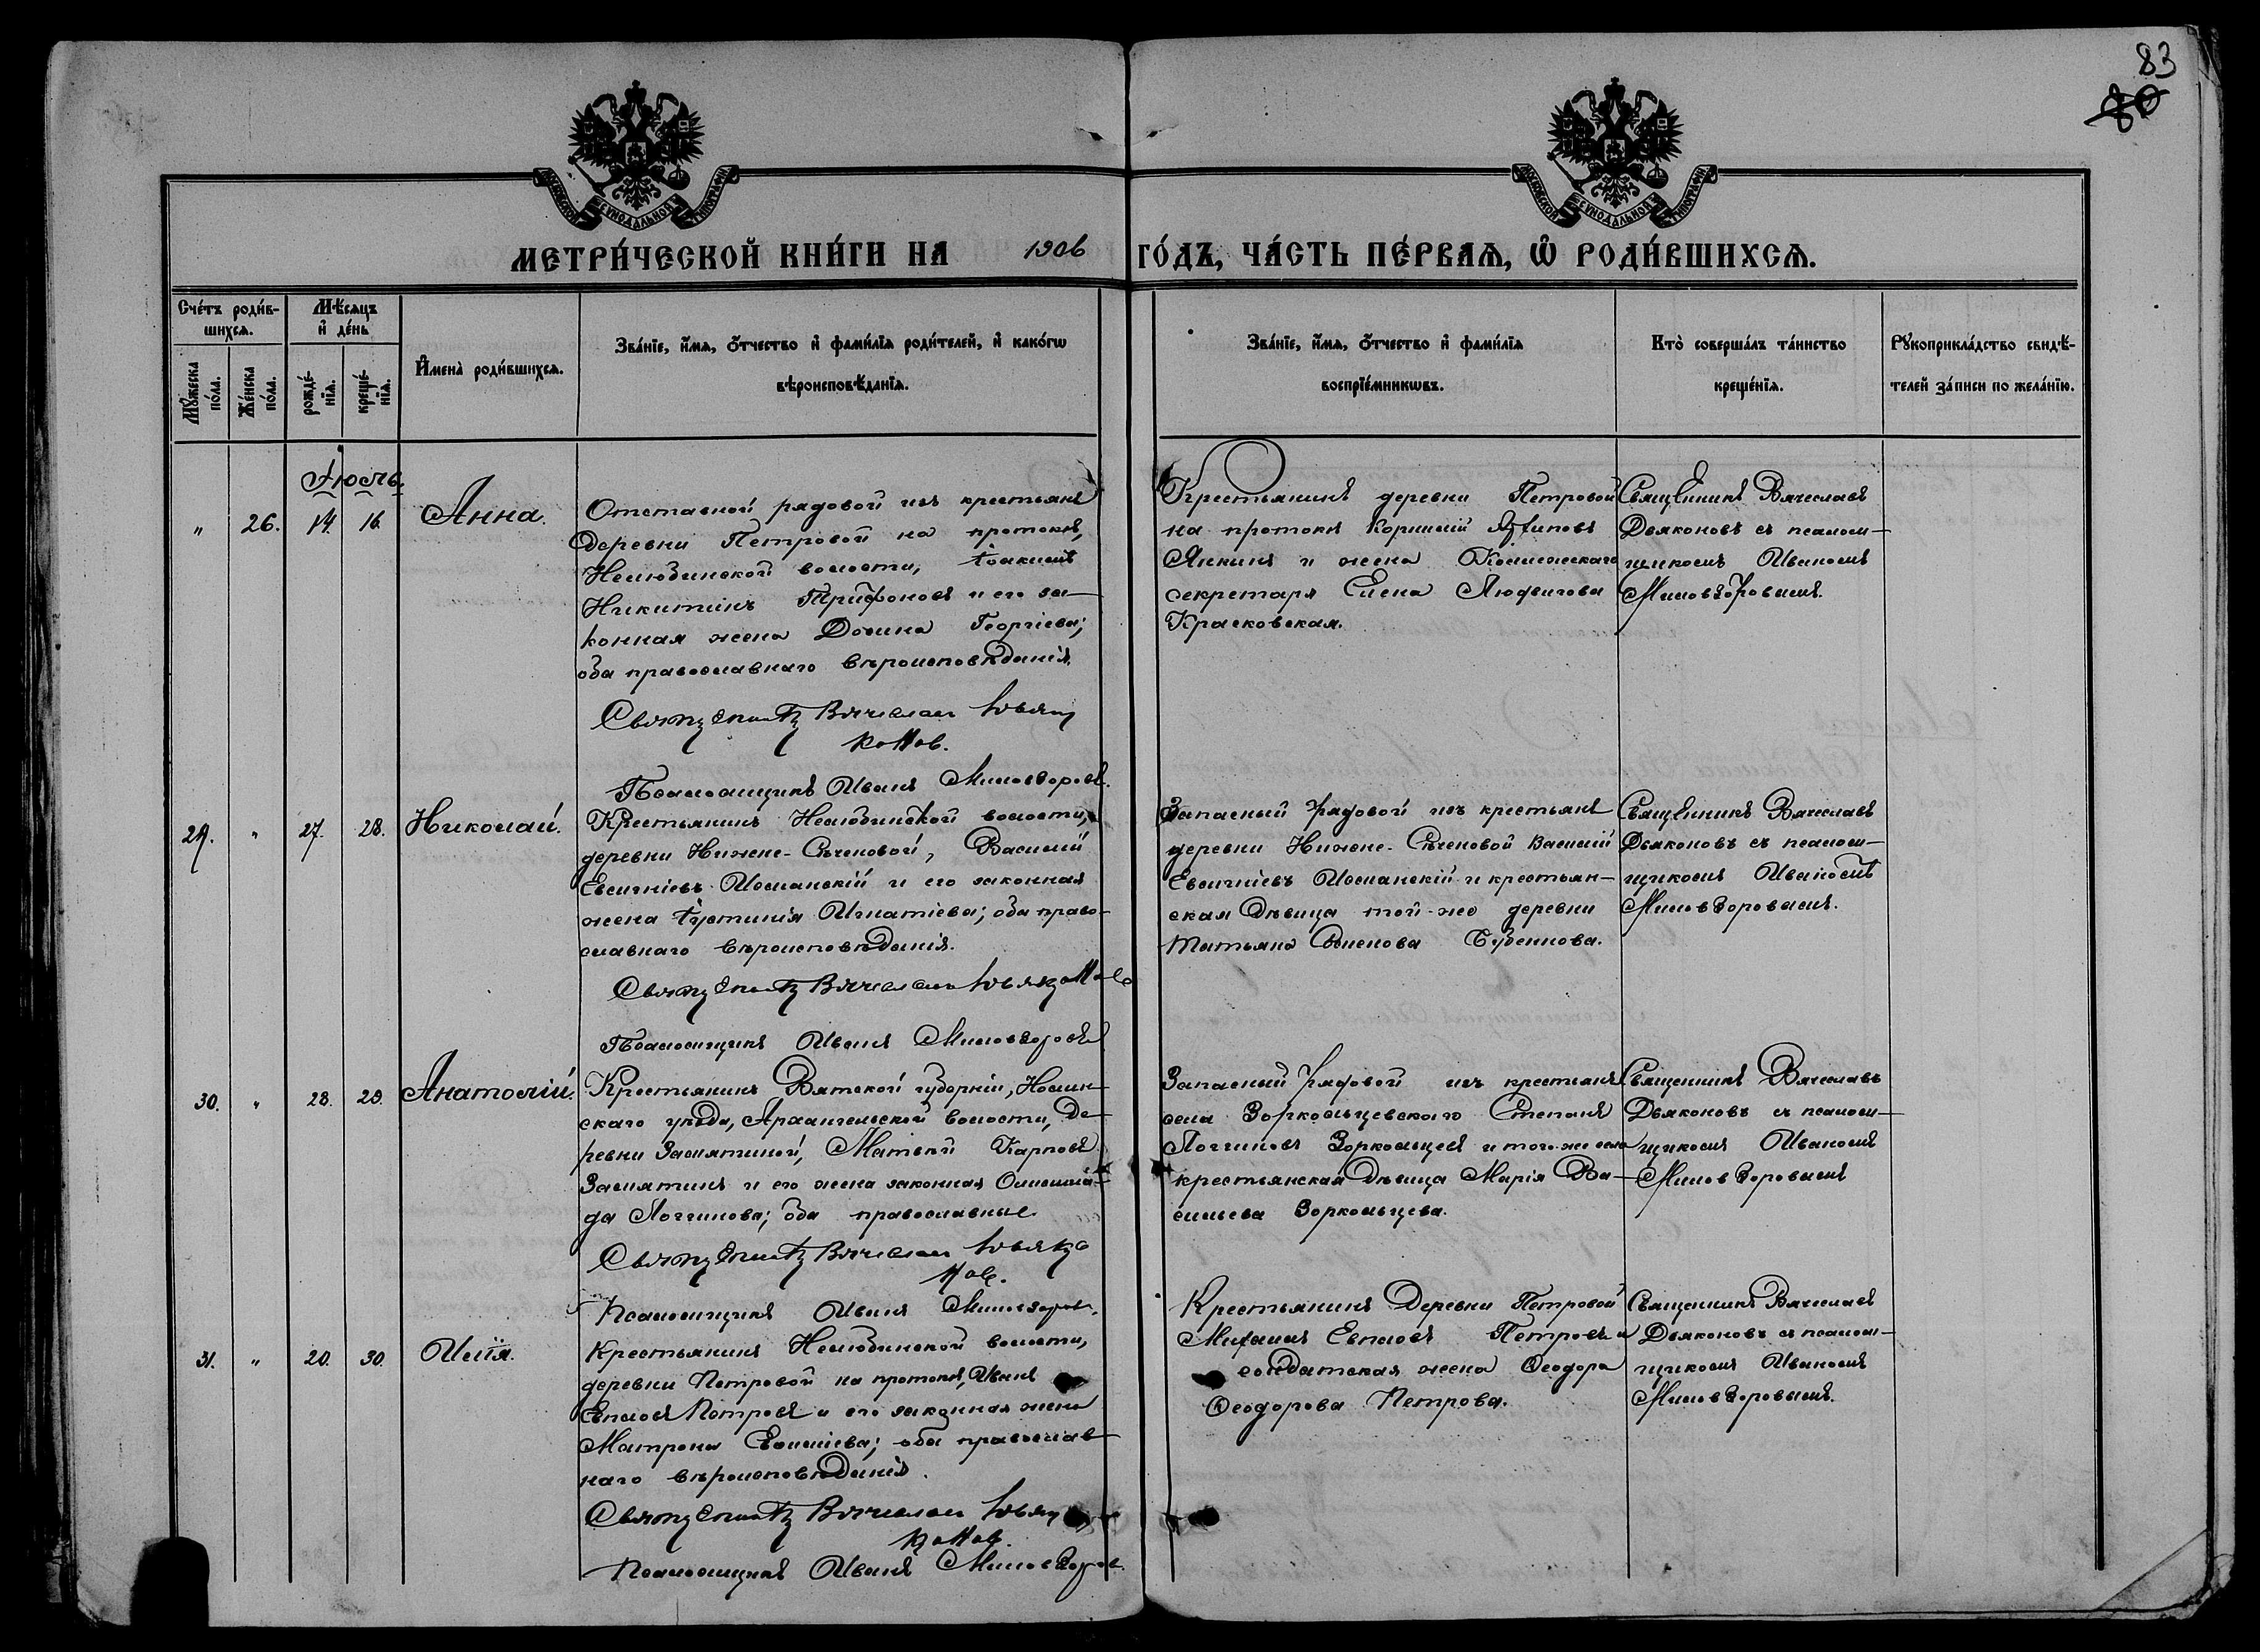 83
80
МОСКОВСКОЙ СѴНОДАЛЬНОЙ ТИПОГРАФІИ
МОСКОВСКОЙ СѴНОДАЛЬНОЙ ТИПОГРАФІИ
МЕТРИ́ЧЕСКОЙ КНИ́ГИ НА 1906 ГО́ДЪ, ЧА́СТЬ ПЕ́РВАѦ, Ѽ РОДИ́ВШИХСѦ.
Сче́тъ роди́в-
шихсѧ.
Мꙋ́жеска по́ла.
Же́нска по́ла.
Мѣ́сѧцъ
и҆ де́нь
рожде́-
нїѧ.
креще́-
нїѧ.
И҆мена̀ роди́вшихсѧ.
Зва́нїе, и҆́мѧ, ѻ҆́тчество и҆ фами́лїѧ роди́телей, и҆ како́гѡ
вѣроисповѣ́данїѧ.
Зва́нїе, и҆́мѧ, ѻ҆́тчество и҆ фами́лїѧ
воспрїе́мникѡвъ.
Кто̀ соверша́лъ та́инство
креще́нїѧ.
Рꙋкоприкла́дство свидѣ́-
телей за́писи по жела́нїю.
Іюль.
" 26. 14. 16. Анна.
Отставной рядовой изъ крестьянъ
деревни Петровой на протокѣ,
Нелюбинской волости, Іоакимъ
Никитинъ Трифоновъ и его за-
конная жена Домна Георгіева;
оба православнаго вѣроисповѣданія.
Священникъ Вячеславъ Дьяко
новъ.
Псаломщикъ Иванъ Миловзоровъ.
Крестьянинъ деревни Петровой
на протокѣ Корнилій
Янинъ и жена Коллежскаго
секретаря Елена Людвигова
Красковская.
Священникъ Вячеславъ
Дьяконовъ съ псалом-
щикомъ Иваномъ
Миловзоровымъ.
29. " 27. 28. Николай.
Крестьянинъ Нелюбинской волости,
деревни Нижне-Сѣченовой, Василій
Евсигніевъ и его законная
жена Іустинія Игнатіева; оба право-
славнаго вѣроисповѣданія.
Священникъ Вячеславъ Дьяконовъ
Псаломщикъ Иванъ Миловзоровъ
Запасный рядовой изъ крестьянъ
деревни Нижне-Сѣченовой Василій
Евсигніевъ и крестьян-
ская дѣвица той-же деревни
Татьяна Семенова
Священникъ Вячеславъ
Дьяконовъ съ псалом-
щикомъ Иваномъ
Миловзоровымъ.
30. " 28. 29. Анатолій.
Крестьянинъ Вятской губерніи, Нолин-
скаго уѣзда, Архангельской волости, де-
ревни Замятиной, Матвѣй Карповъ
Замятинъ и его жена законная Олимпіа-
да Логгинова; оба православные.
Священникъ Вячеславъ Дьяко
новъ.
Псаломщикъ Иванъ Миловзоровъ.
Запасный рядовой изъ крестьянъ
села Зоркольцевскаго Степанъ
Логгиновъ Зоркольцевъ и того-же села
крестьянская дѣвица Марія Ва-
сильева Зоркольцева.
Священникъ Вячеславъ
Дьяконовъ съ псалом-
щикомъ Иваномъ
Миловзоровымъ
31. " 20. 30. Илія.
Крестьянинъ Нелюбинской волости,
деревни Петровой на протокѣ, Иванъ
Евпловъ Петровъ и его законная жена
Матрона; оба православ-
наго вѣроисповѣданія.
Священникъ Вячеславъ Дьяко
новъ.
Псаломщикъ Иванъ Миловзоровъ
Крестьянинъ деревни Петровой
Михаилъ Евпловъ Петровъ и
солдатская жена Ѳеодора
Ѳеодорова Петрова.
Священникъ Вячеславъ
Дьяконовъ съ псалом-
щикомъ Иваномъ
Миловзоровымъ.